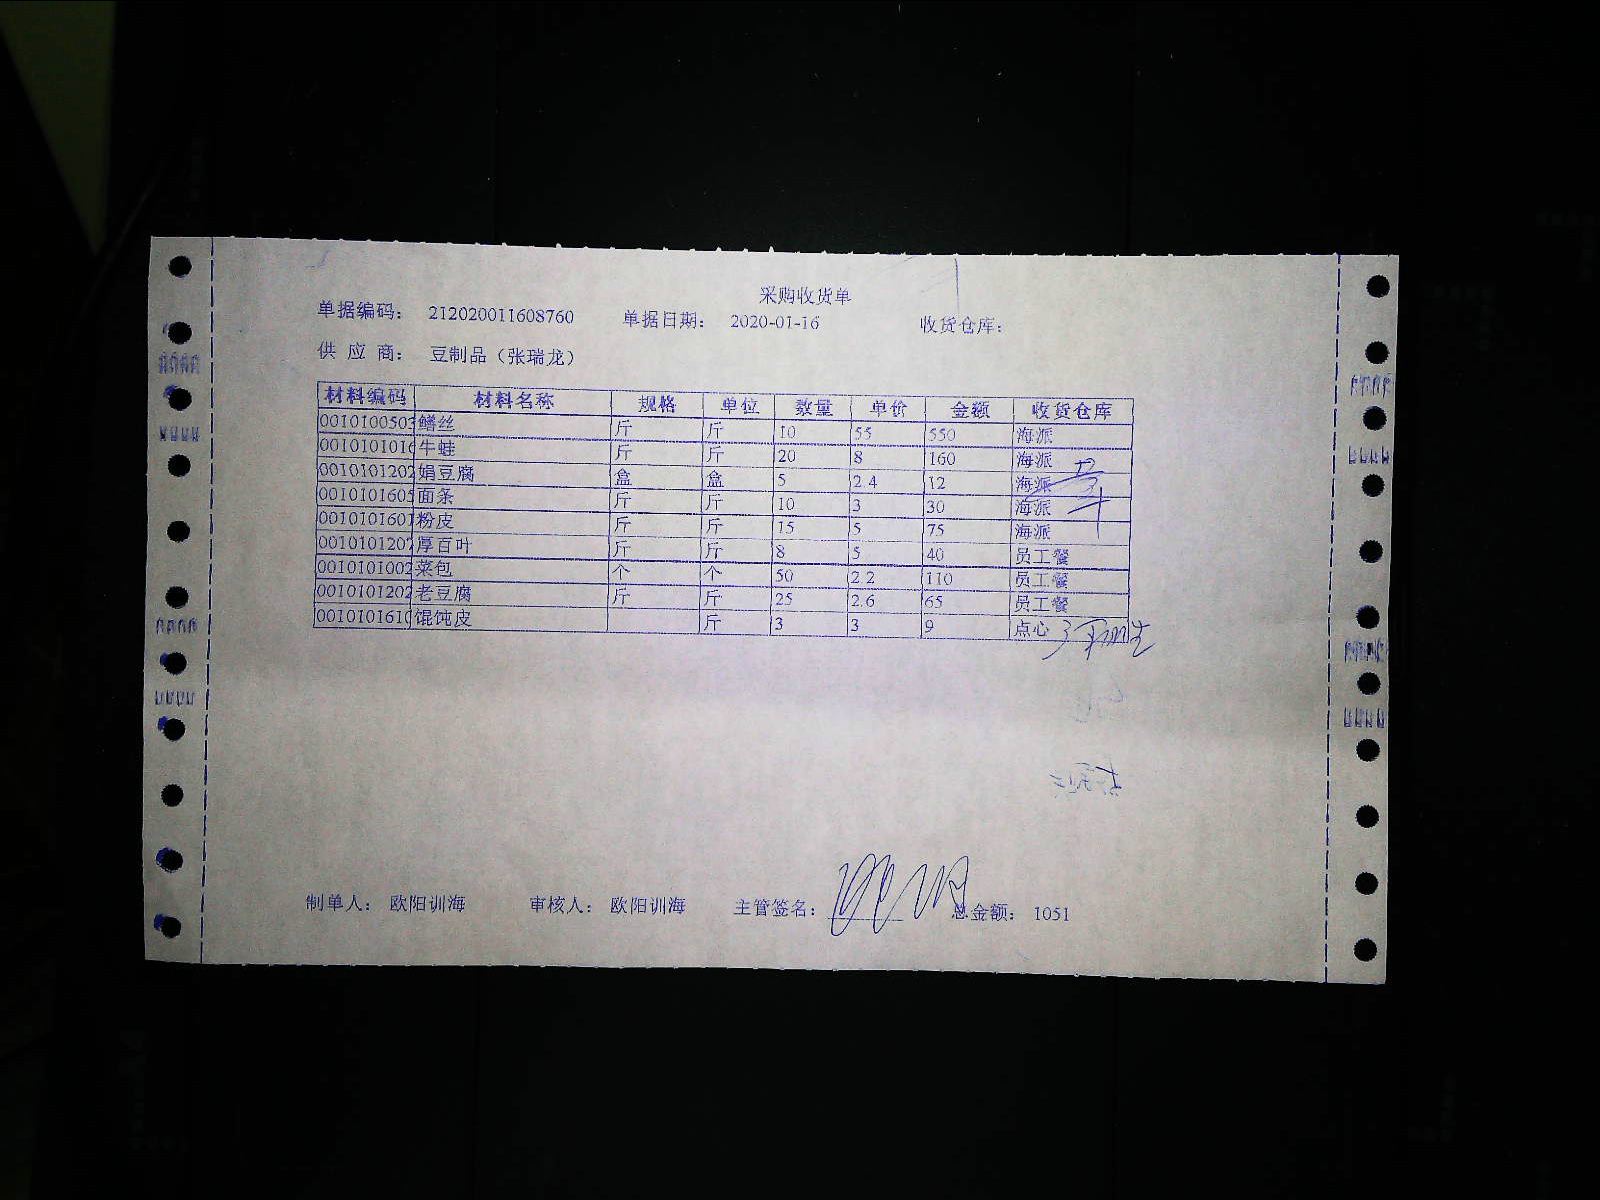 采购收货单
单据编码： 212020011608760 单据日期： 2020-01-16 收货仓库：
供 应 商： 豆制品（张瑞龙）
材料编码 材料名称 规格 单位 数量 单价 金额 收货仓库
0010100503 鳝丝 斤 斤 10 55 550 海派
0010101016 牛蛙 斤 斤 20 8 160 海派
0010101202 娟豆腐 盒 盒 5 2.4 12 海派
0010101605 面条 斤 斤 10 3 30 海派
0010101601 粉皮 斤 斤 15 5 75 海派
0010101207 厚百叶 斤 斤 8 5 40 员工餐
0010101002 菜包 个 个 50 2.2 110 员工餐
0010101202 老豆腐 斤 斤 25 2.6 65 员工餐
0010101610 馄饨皮 斤 3 3 9 点心
制单人： 欧阳训海 审核人： 欧阳训海 主管签名： 总金额： 1051